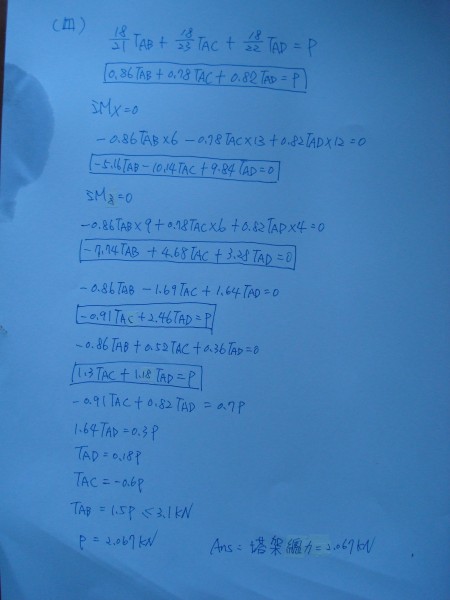 (四)
18/21 TAB + 18/23 TAC + 18/22 TAD = P
0.86TAB + 0.78TAC + 0.82TAD = P
ΣMX=0
-0.86TAB×6 -0.78TAC×13 + 0.82TAD×12 = 0
-5.16TAB - 10.14TAC + 9.84TAD = 0
ΣMz=0
-0.86TAB×9 + 0.78TAC×6 + 0.82TAD×4 = 0
-7.74TAB + 4.68TAC + 3.28TAD = 0
-0.86TAB - 1.69TAC + 1.64TAD = 0
-0.91TAC + 2.46TAD = P
-0.86TAB + 0.52TAC + 0.36TAD = 0
1.3TAC + 1.18TAD = P
-0.91TAC + 0.82TAD = 0.7P
1.64TAD = 0.3P
TAD = 0.18P
TAC = -0.6P
TAB = 1.5P ≤ 3.1KN
P = 2.067KN
Ans = 塔架 力 = 2.067KN